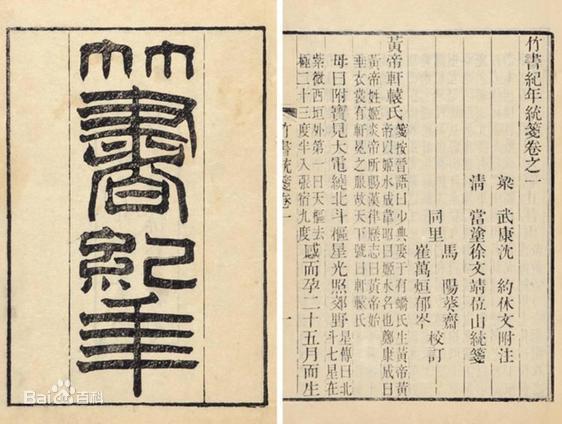 竹書紀年
Bai百科
竹書紀年統箋卷之一
梁 武康沈 約休文附注
清 當塗徐文靖位山統箋
馬 陽葵齋
同里 校訂
崔萬烜郁岑
黃帝軒轅氏 箋按晉語曰少典娶于有蟜氏生黃帝黃
帝以姬水成韋昭曰姬水名也鄭康成曰
黃帝姓姬炎帝所賜漢律歷志曰黃帝始
垂衣裳有軒冕之服故天下號曰軒轅氏
母曰附寶見大電繞北斗樞星光照郊野 星傳曰北
斗七星在
紫微西垣外第一曰天樞去
極二十三度半入張宿九度 感而孕二十五月而生
竹書統箋卷一 一